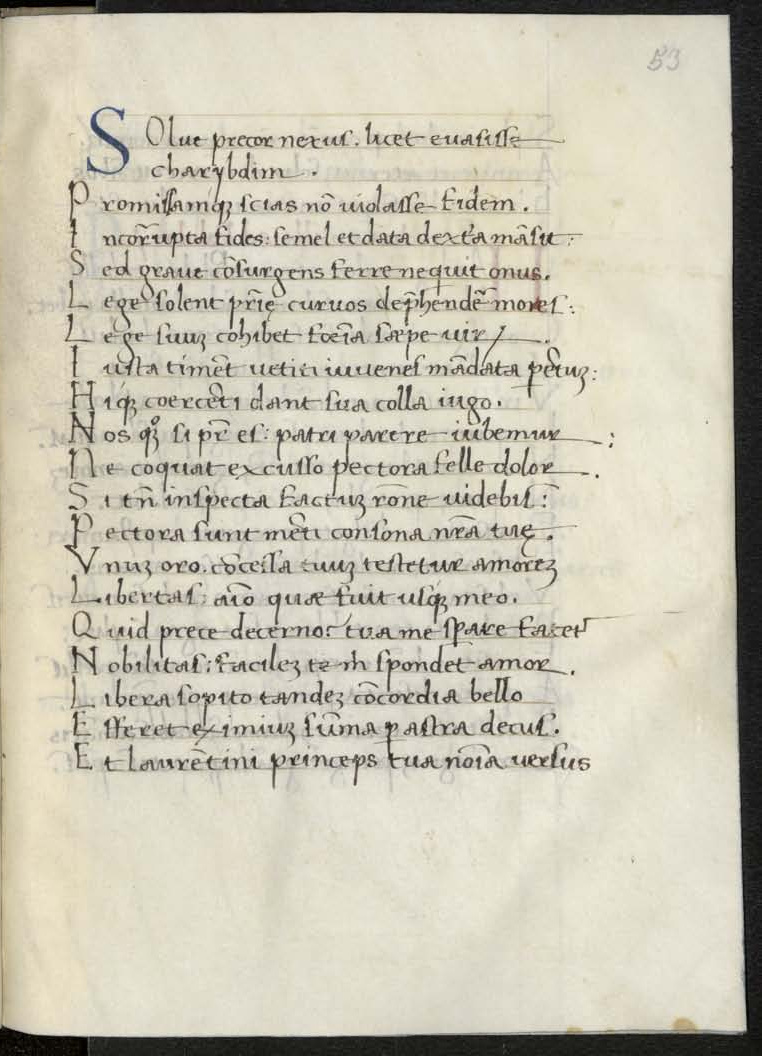 53
SOlue precor nexus. licet euasisse
charybdim.
Promissamqꝫ scias nō uiolasse fidem.
Incorrupta fides: semel et data dext̄a māsit:
Sed graue cōsurgens ferre nequit onus.
Lege solent pr̄ię curuos dep̄hendēr mores:
Lege suuꝫ cohibet foeīa sæpe uir
Iusta timēt uetiti iuuenes mādata
Hiqꝫ coercēti dant sua colla iugo.
Nos si pr̄ es: patri parere iubemur:
Ne coquat excusso pectora felle dolor.
Si tn̄ inspecta factuꝫ rōne uidebis:
Pectora sunt mēti consona nr̄a tuę.
Vnuꝫ oro. cōcessa tuuꝫ testetur amoreꝫ
Libertas: aīo quæ fuit usqꝫ meo.
Quid prece decerno? tua me spare facet
Nobilitas: facileꝫ te m̄ spondet amor.
Libera sopito tandeꝫ cōcordia bello
Efferet eximiuꝫ sūma ꝑ astra decus.
Et laurētini princeps tua noīa uersus